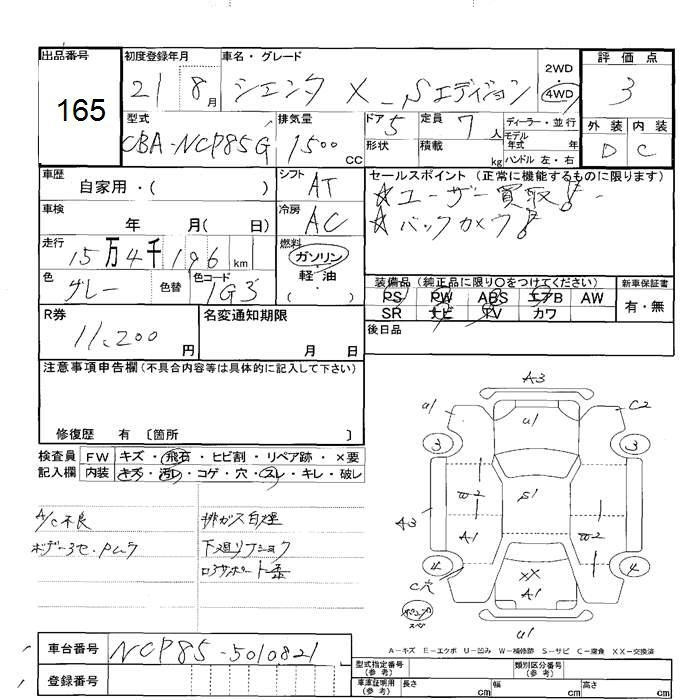 出品番号
165
初度登録年月
21 8月
車名・グレード
シエンタ X_Sエディション
2WD
4WD
評価点
3
型式
CBA-NCP85G
排気量
1500 CC
ドア 5
形状
定員 7 人
積載 kg
ディーラー・並行
モデル年式 年
ハンドル 左・右
外装 内装
D C
車歴
自家用・( )
シフト AT
セールスポイント (正常に機能するものに限ります)
☆ユーザー買取!
☆バックカメラ!
車検 年 月( 日)
冷房 AC
走行 15万4千196km
燃料
ガソリン
軽油
( ・ )
色 グレー 色替
色コード 1G3
装備品 (純正品に限り○をつけてください)
PS PW ABS エアB AW
SR ナビ TV カワ
新車保証書
有・無
後日品
R券
11,200円
名変通知期限
月 日
注意事項申告欄 (不具合内容等は具体的に記入して下さい)
修復歴 有 〔箇所 〕
検査員記入欄
FW キズ・飛石・ヒビ割・リペア跡・×要
内装 キズ・汚レ・コゲ・穴・スレ・キレ・破レ
A/C不良
ボデー3セ・Pムラ
排ガス臭
下廻リフショク
A3
u1
u1
C2
3
3
w2
S1
A3
A1
w2
4
4
C穴
XX
A1
u1
A-キズ E-エクボ U-凹み W-補修跡 S-サビ C-腐食 XX-交換済
車台番号 NCP85-5010821
登録番号
型式指定番号 (参考)
類別区分番号 (参考)
車庫証明用 (参考)
長さ cm
幅 cm
高さ cm